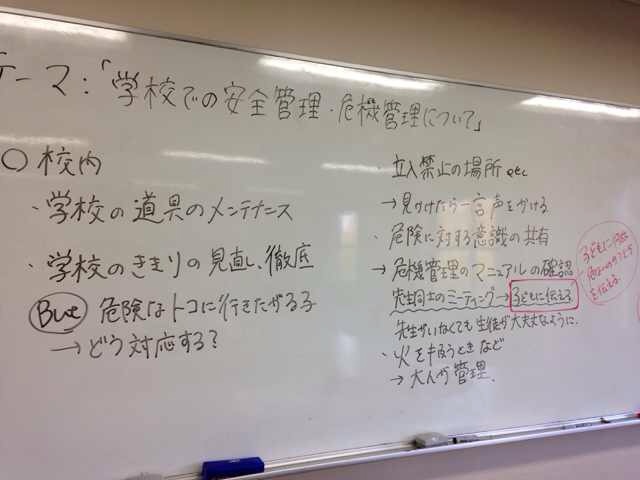 テーマ:「学校での安全管理・危機管理について」
○校内
・学校の道具のメンテナンス
・学校のきまりの見直し、徹底
But 危険なトコに行きたがる子
→どう対応する?
・立入禁止の場所 etc
→見かけたら一言声をかける
・危険に対する意識の共有
→危機管理のマニュアルの確認
先生同士のミーティング→子どもに伝える
先生がいなくても生徒が大丈夫なように.
・火を扱うときなど
→大人が管理.
子どもに
を伝える